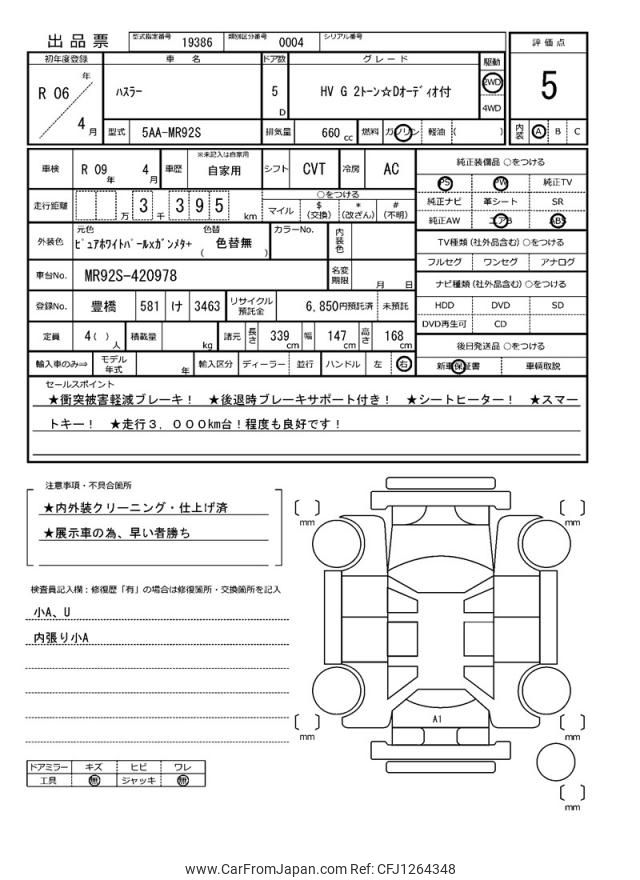 出品票 型式指定番号 19386 類別区分番号 0004 シリアル番号
評価点
初年度登録 車名 ドア数 グレード 駆動
R 06 年 4 月
ハスラー 5 D HV G 2トーン☆Dオーディオ付 2WD 4WD
5
型式 5AA-MR92S 排気量 660 cc 燃料 ガソリン 軽油 ( )
内装 A B C
車検 R 09 年 4 月 車歴 ※未記入は自家用 自家用 シフト CVT 冷房 AC
純正装備品 ○をつける
PS PW 純正TV
走行距離 万 3 千 3 9 5 km
○をつける
マイル $(交換) *(改ざん) #(不明)
純正ナビ 革シート SR
純正AW エアB ABS
外装色 元色 ピュアホワイトパールxガンメタ+ 色替 ( 色替無 ) カラーNo. 内装色
TV種類 (社外品含む) ○をつける
フルセグ ワンセグ アナログ
車台No. MR92S-420978 名変期限 月 日
ナビ種類 (社外品含む) ○をつける
登録No. 豊橋 581 け 3463 リサイクル預託金 6,850円預託済 未預託
HDD DVD SD
DVD再生可 CD
定員 4( ) 人 積載量 kg 諸元 長さ 339 cm 幅 147 cm 高さ 168 cm
後日発送品 ○をつける
輸入車のみ⇒ モデル年式 年 輸入区分 ディーラー 並行 ハンドル 左 右
新車保証書 車輌取説
セールスポイント
★衝突被害軽減ブレーキ! ★後退時ブレーキサポート付き! ★シートヒーター! ★スマー
トキー! ★走行3,000km台!程度も良好です!
注意事項・不具合箇所
★内外装クリーニング・仕上げ済
★展示車の為、早い者勝ち
検査員記入欄:修復歴「有」の場合は修復箇所・交換箇所を記入
小A、U
内張り小A
ドアミラー キズ ヒビ ワレ
工具 無 ジャッキ 無
[ ] mm
[ ] mm
A1
[ ] mm
[ ] mm
[ ] mm
www.CarFromJapan.com Ref: CFJ1264348